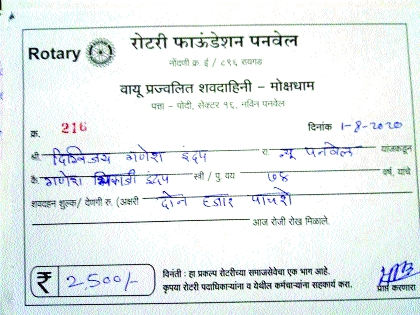 Rotary रोटरी फाऊंडेशन पनवेल
नोंदणी क्र. ई / ८९६ रायगड
वायू प्रज्वलित शवदाहिनी – मोक्षधाम
पत्ता - पोदी, सेक्टर १६, नविन पनवेल
क्र. 216 दिनांक 1-8-2020
श्री. दिग्विजय गणेश इंदप रा. न्यू पनवेल यांजकडून
कै. गणेश भिकाजी इंदप स्त्री / पु. वय ७४ वर्ष, यांचे
शवदहन शुल्क/ देणगी रु. (अक्षरी दोन हजार पाचशे
आज रोजी रोख मिळाले.
₹ 2,500/-
विनंती : हा प्रकल्प रोटरीच्या समाजसेवेचा एक भाग आहे.
कृपया रोटरी पदाधिकाऱ्यांना व येथील कर्मचाऱ्यांना सहकार्य करा.
प्राप्त करणारा